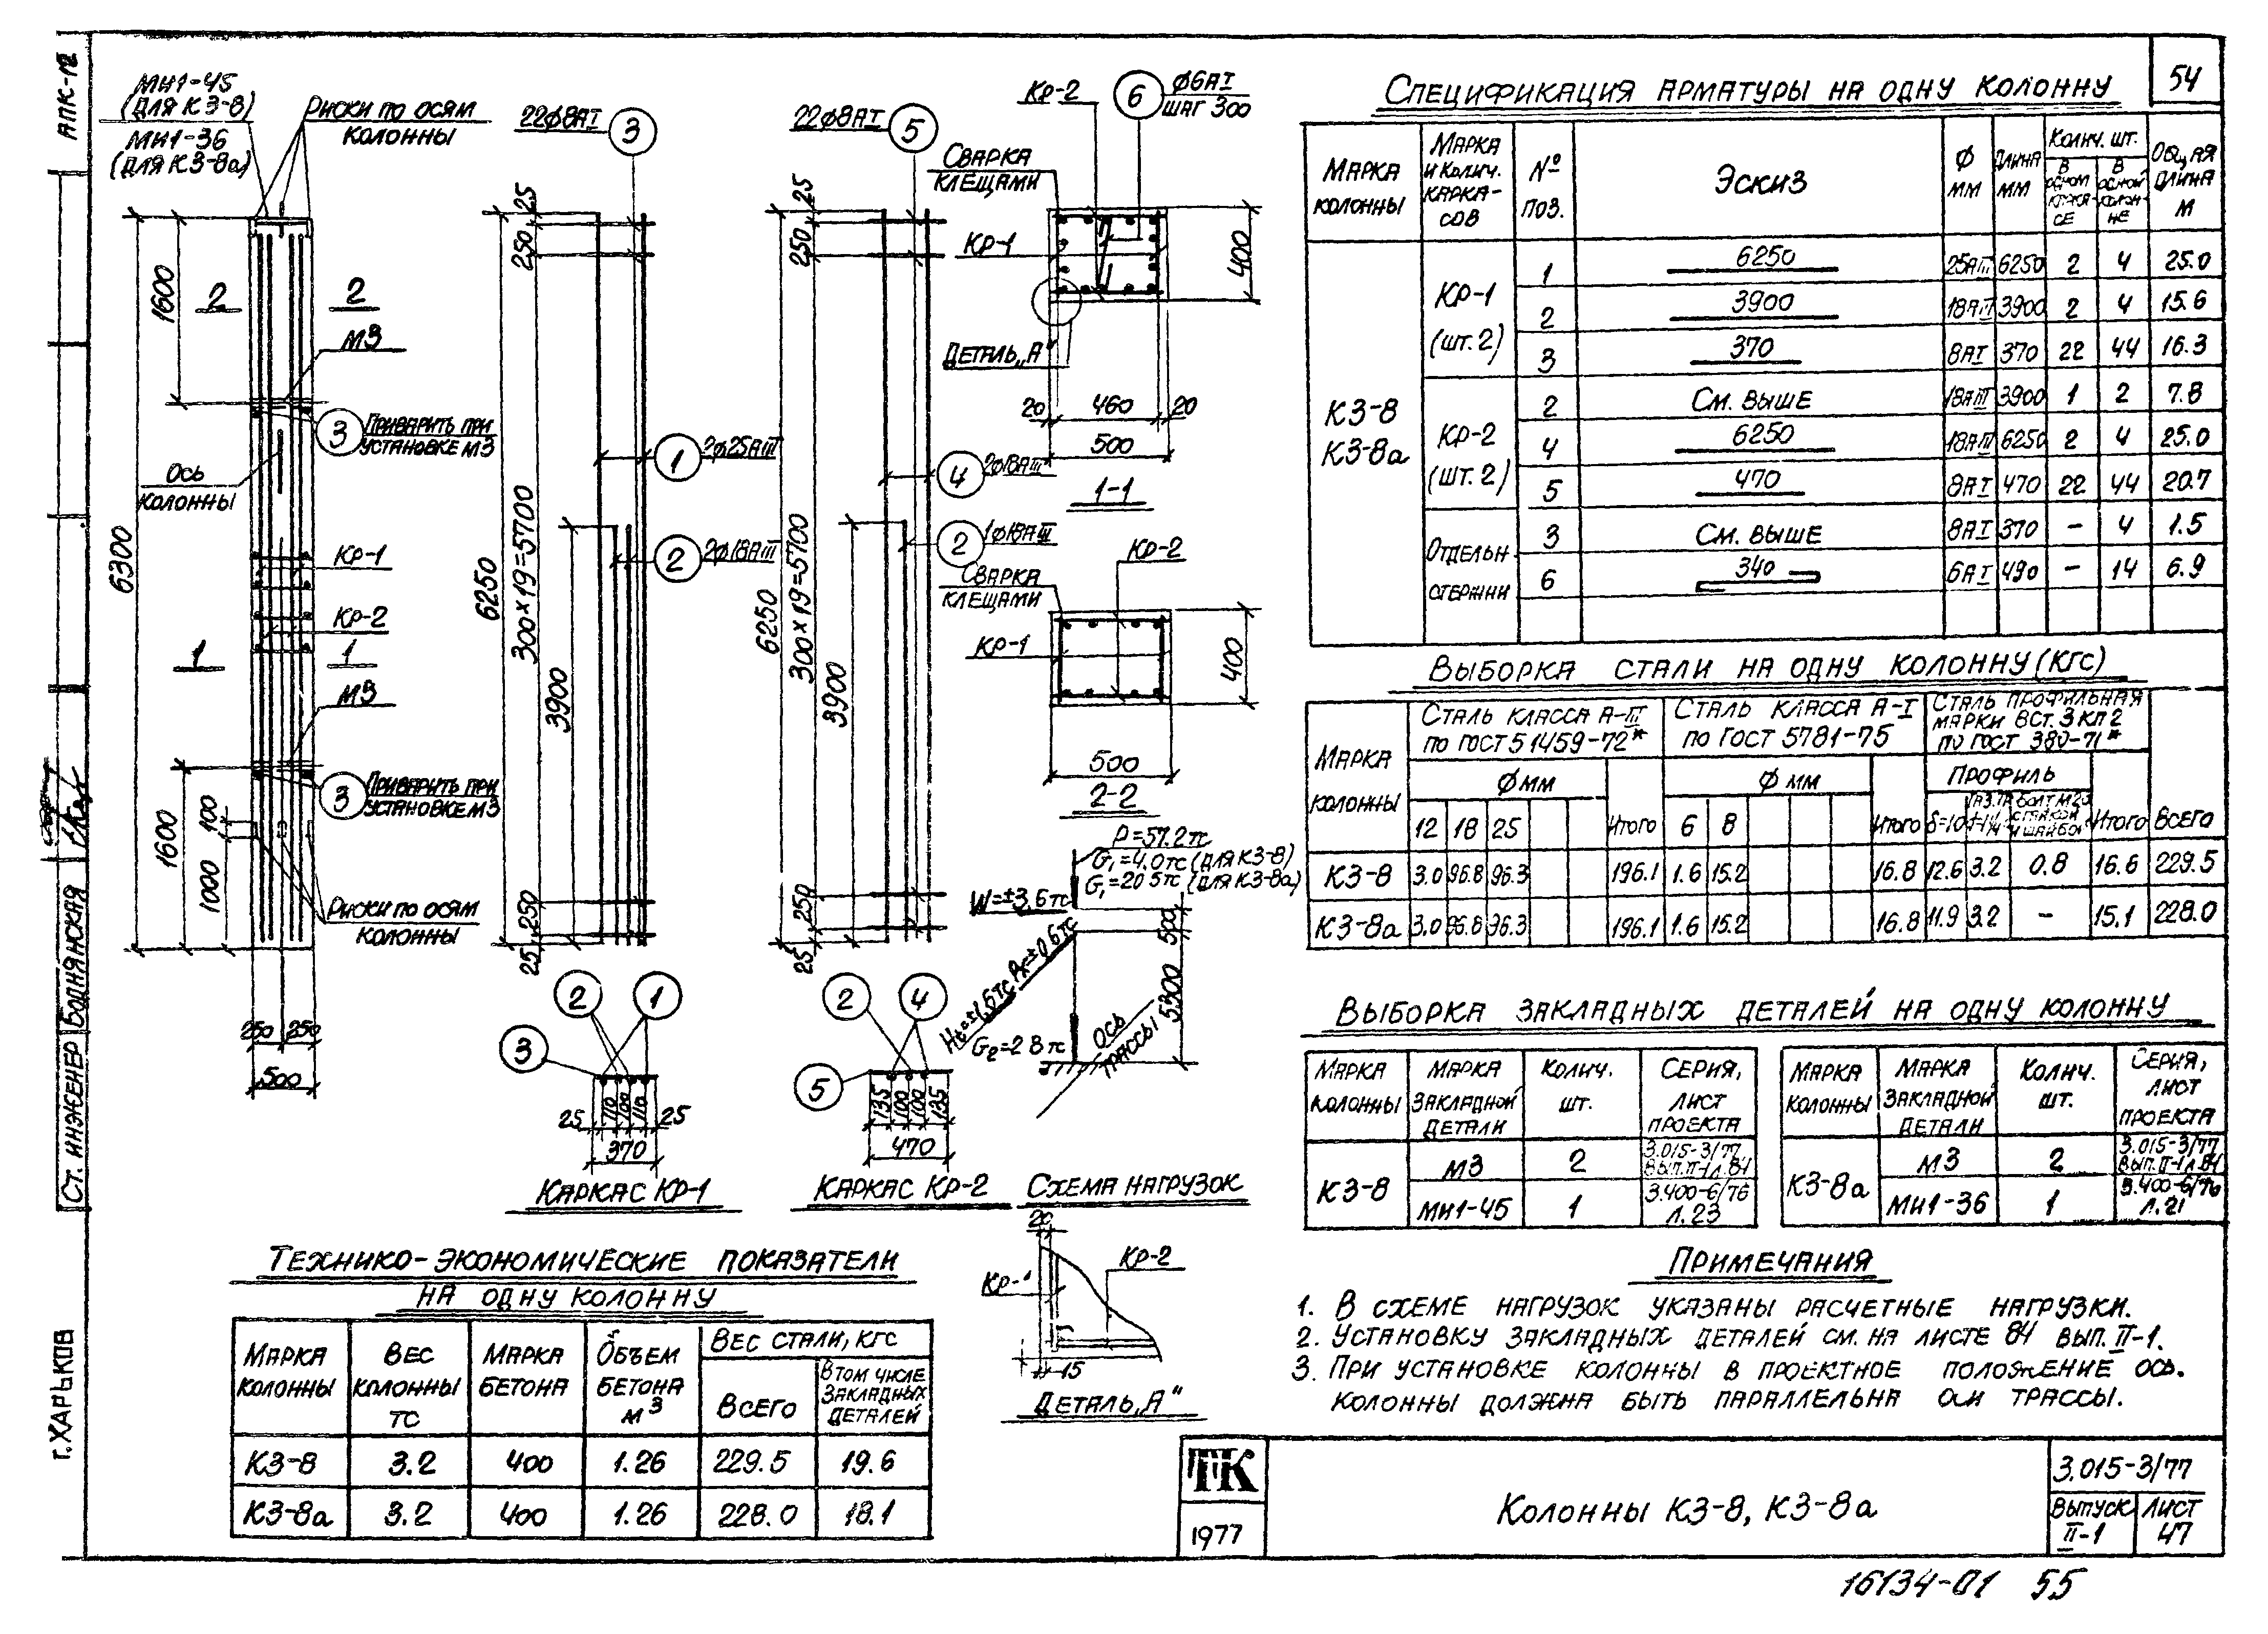 54
АПК-12
МИ1-45
(ДЛЯ КЗ-8)
МИ1-36
(ДЛЯ КЗ-8а)
РИСКИ ПО ОСЯМ
КОЛОННЫ
1600
2 2
М3
3 ПРИВАРИТЬ ПРИ
УСТАНОВКЕ М3
ОСЬ
КОЛОННЫ
6300
КР-1
КР-2
1 1
М3
3 ПРИВАРИТЬ ПРИ
УСТАНОВКЕ М3
1600
100
1000
РИСКИ ПО ОСЯМ
КОЛОННЫ
250 250
500
22Ф8АI 3
25
250
6250
300×19=5700
3900
1 2Ф25АIII
2 2Ф18АIII
250
25
2 1
3
25 110 100 110 25
370
КАРКАС КР-1
22Ф8АI 5
25
250
6250
300×19=5700
3900
4 2Ф18АIII
2 1Ф18АIII
250
25
2 4
5
135 100 100 135
470
КАРКАС КР-2
КР-2
6 Ф6АI
ШАГ 300
СВАРКА
КЛЕЩАМИ
КР-1
400
ДЕТАЛЬ „А"
20 460 20
500
1-1
КР-2
СВАРКА
КЛЕЩАМИ
КР-1
400
500
2-2
P=57.2тс
G1=4.0тс (ДЛЯ КЗ-8)
G1=20 5тс (ДЛЯ КЗ-8а)
W=±3.6тс
500
5300
G2=2 8тс
ОСЬ
ТРАССЫ
СХЕМА НАГРУЗОК
20
КР-1
КР-2
15
ДЕТАЛЬ „А"
СПЕЦИФИКАЦИЯ АРМАТУРЫ НА ОДНУ КОЛОННУ
МАРКА КОЛОННЫ МАРКА И КОЛИЧ. КАРКАСОВ № ПОЗ. ЭСКИЗ Ф ММ ДЛИНА ММ КОЛИЧ. ШТ. В ОДНОМ КАРКАСЕ В ОДНОЙ КОЛОННЕ ОБЩАЯ ДЛИНА М
КЗ-8
КЗ-8а
КР-1
(ШТ.2)
1 6250 25АIII 6250 2 4 25.0
2 3900 18АIII 3900 2 4 15.6
3 370 8АI 370 22 44 16.3
КР-2
(ШТ.2)
2 СМ. ВЫШЕ 18АIII 3900 1 2 7.8
4 6250 18АIII 6250 2 4 25.0
5 470 8АI 470 22 44 20.7
ОТДЕЛЬН
СТЕРЖНИ
3 СМ. ВЫШЕ 8АI 370 – 4 1.5
6 340 6АI 490 – 14 6.9
ВЫБОРКА СТАЛИ НА ОДНУ КОЛОННУ (КГС)
МАРКА КОЛОННЫ
СТАЛЬ КЛАССА А-III
ПО ГОСТ 5 1459-72*
СТАЛЬ КЛАССА А-I
ПО ГОСТ 5781-75
СТАЛЬ ПРОФИЛЬНАЯ
МАРКИ ВСТ. 3 КП 2
ПО ГОСТ 380-71*
Ф ММ Ф ММ ПРОФИЛЬ
12 18 25 ИТОГО 6 8 ИТОГО δ=10 ИТОГО ВСЕГО
КЗ-8 3.0 96.8 96.3 196.1 1.6 15.2 16.8 12.6 3.2 0.8 16.6 229.5
КЗ-8а 3.0 96.8 96.3 196.1 1.6 15.2 16.8 11.9 3.2 – 15.1 228.0
ВЫБОРКА ЗАКЛАДНЫХ ДЕТАЛЕЙ НА ОДНУ КОЛОННУ
МАРКА КОЛОННЫ МАРКА ЗАКЛАДНОЙ ДЕТАЛИ КОЛИЧ. ШТ. СЕРИЯ, ЛИСТ ПРОЕКТА
КЗ-8 М3 2 3.015-3/77 ВЫП.II-1 Л.84
МИ1-45 1 3.400-6/76 Л.23
МАРКА КОЛОННЫ МАРКА ЗАКЛАДНОЙ ДЕТАЛИ КОЛИЧ. ШТ. СЕРИЯ, ЛИСТ ПРОЕКТА
КЗ-8а М3 2 3.015-3/77 ВЫП.II-1 Л.84
МИ1-36 1 3.400-6/76 Л.21
ТЕХНИКО-ЭКОНОМИЧЕСКИЕ ПОКАЗАТЕЛИ
НА ОДНУ КОЛОННУ
МАРКА КОЛОННЫ ВЕС КОЛОННЫ ТС МАРКА БЕТОНА ОБЪЕМ БЕТОНА М3 ВЕС СТАЛИ, КГС ВСЕГО В ТОМ ЧИСЛЕ ЗАКЛАДНЫХ ДЕТАЛЕЙ
КЗ-8 3.2 400 1.26 229.5 19.6
КЗ-8а 3.2 400 1.26 228.0 18.1
ПРИМЕЧАНИЯ
1. В СХЕМЕ НАГРУЗОК УКАЗАНЫ РАСЧЕТНЫЕ НАГРУЗКИ.
2. УСТАНОВКУ ЗАКЛАДНЫХ ДЕТАЛЕЙ СМ. НА ЛИСТЕ 84 ВЫП. II-1.
3. ПРИ УСТАНОВКЕ КОЛОННЫ В ПРОЕКТНОЕ ПОЛОЖЕНИЕ ОСЬ.
КОЛОННЫ ДОЛЖНА БЫТЬ ПАРАЛЛЕЛЬНА ОСИ ТРАССЫ.
ТК
1977
КОЛОННЫ КЗ-8, КЗ-8а
3.015-3/77
ВЫПУСК
II-1
ЛИСТ
47
СТ. ИНЖЕНЕР БОДНЯНСКАЯ
г. ХАРЬКОВ
16134-01 55